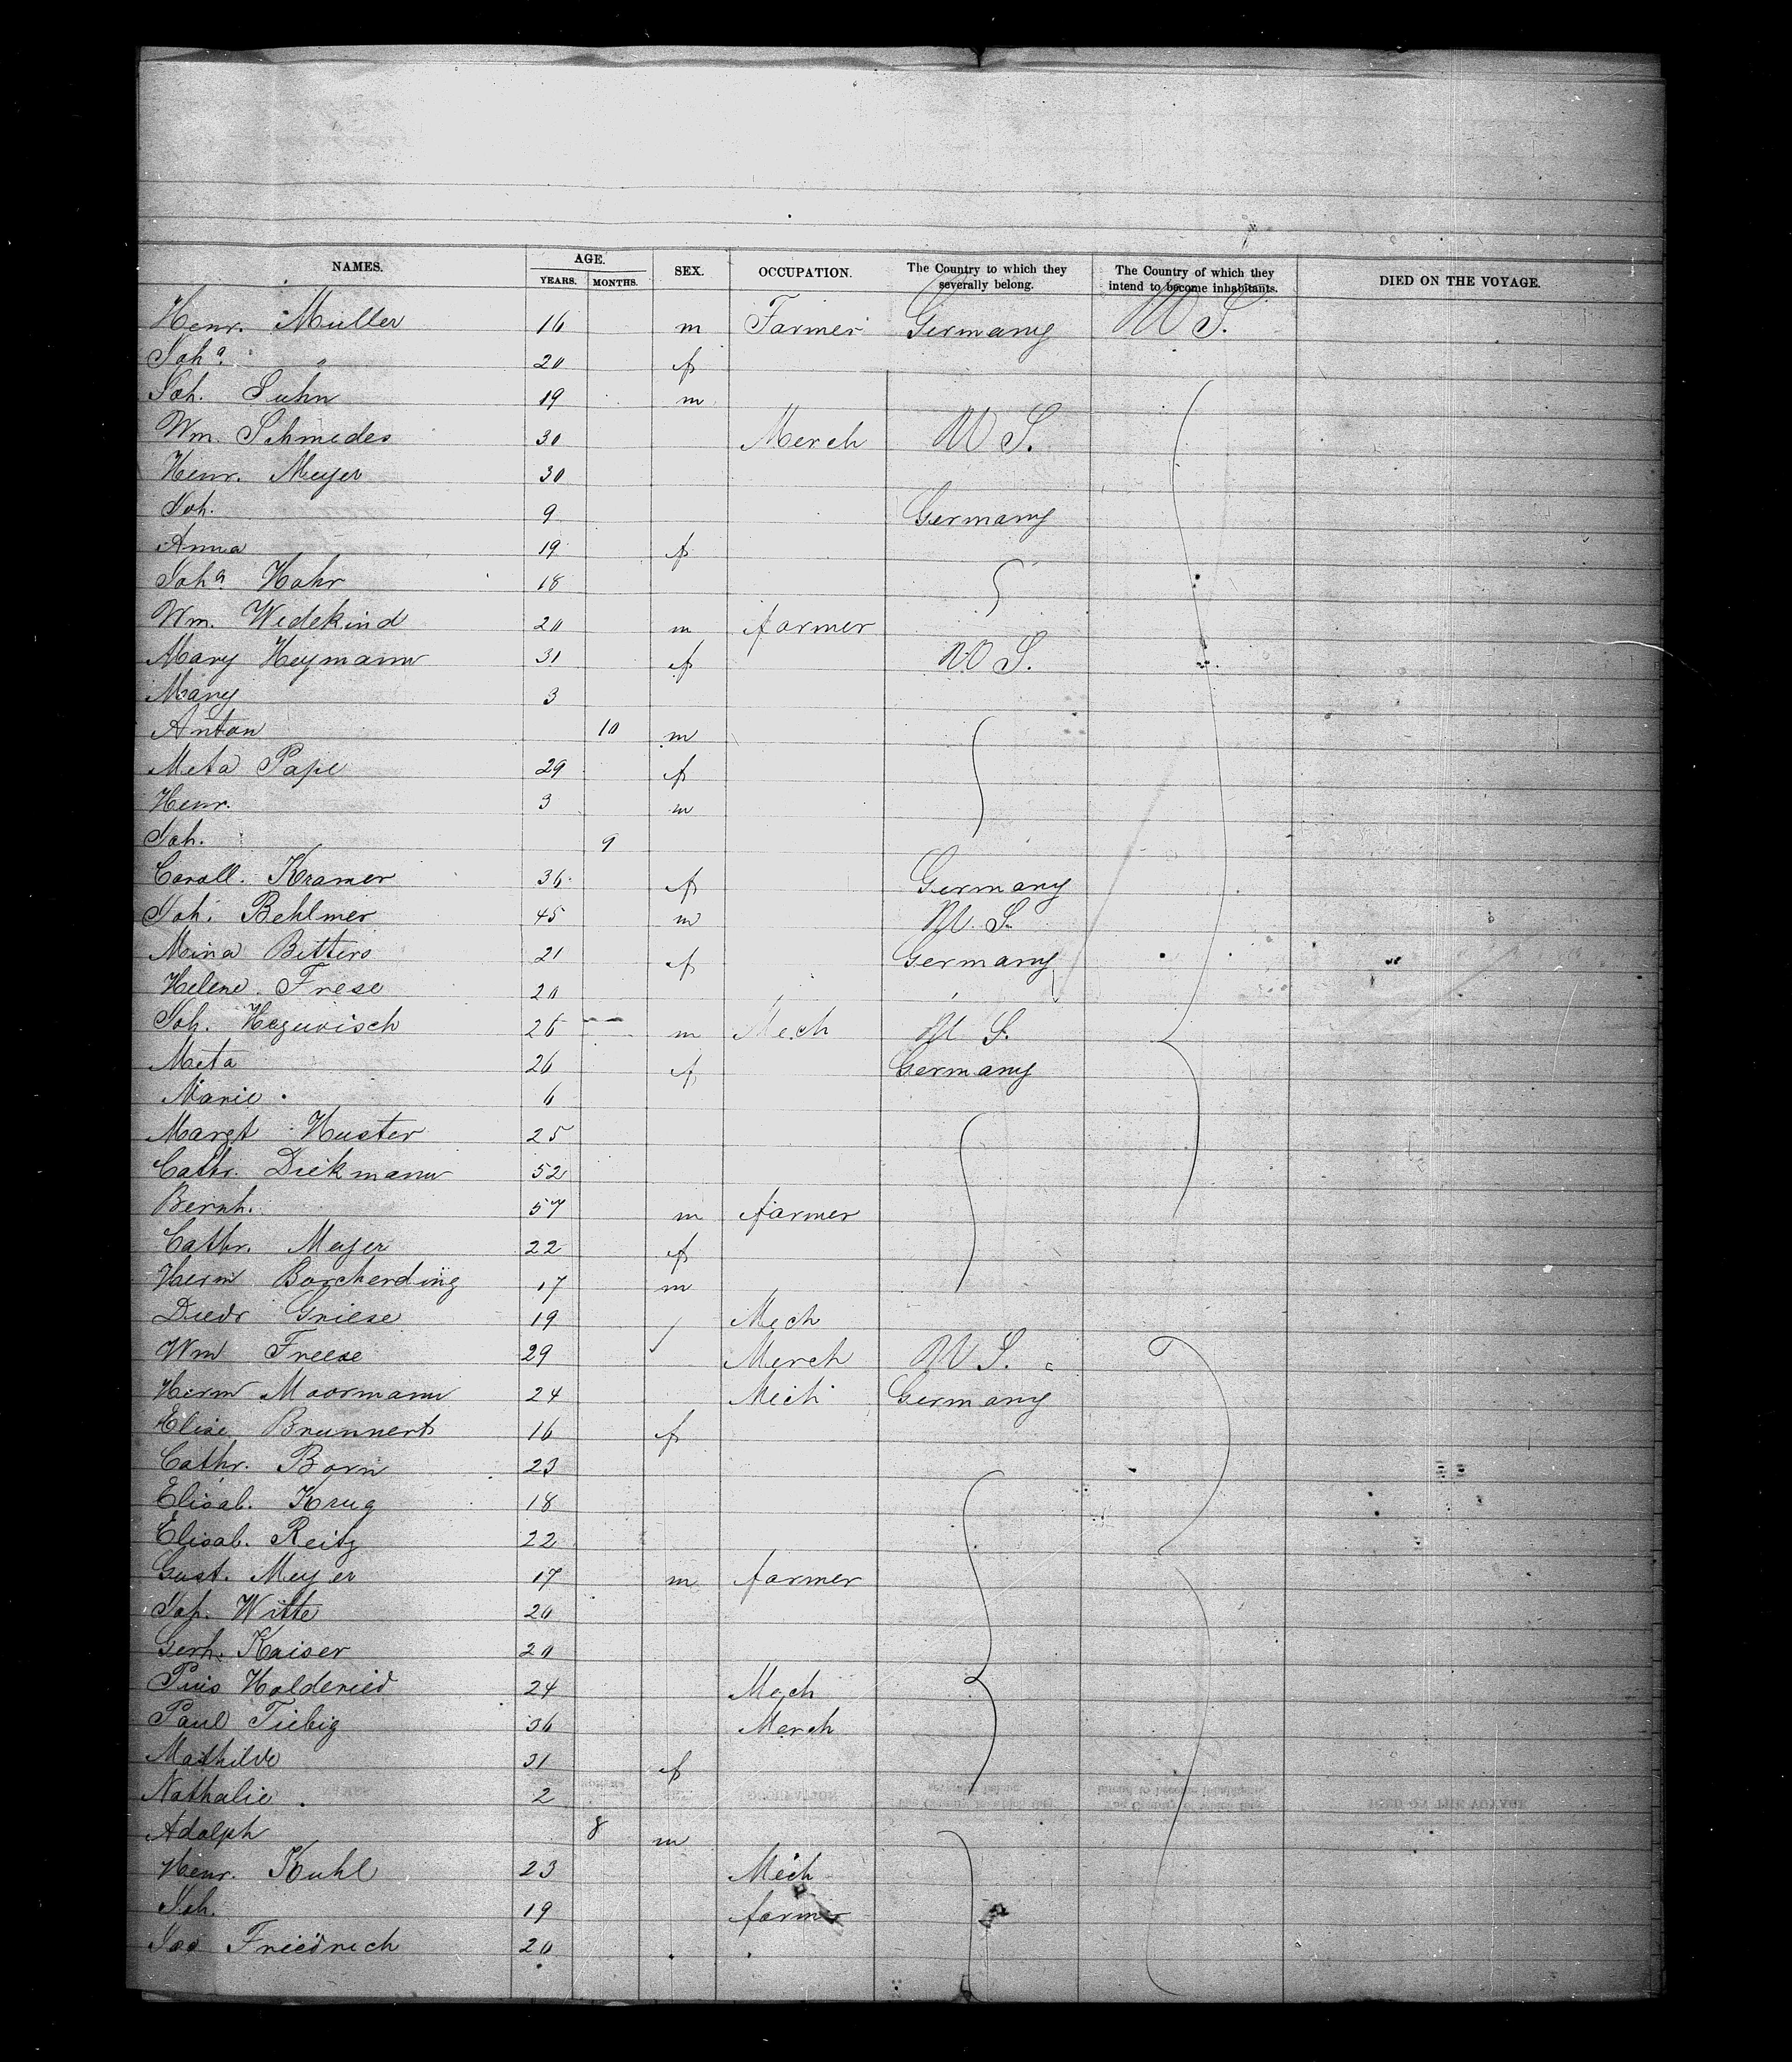 NAMES. AGE. YEARS. MONTHS. SEX. OCCUPATION. The Country to which they severally belong. The Country of which they intend to become inhabitants. DIED ON THE VOYAGE.
Henr. Müller 16 m Farmer Germany U S.
Joha. " 20 f
Joh. Suhn 19 m
Wm. Schmedes 30 Merch U S.
Henr. Meyer 30
Joh. 9 Germany
Anna 19 f
Joha Hohr 18
Wm. Wedekind 20 m farmer
Mary Heymann 31 f U S.
Mary 3
Anton 10 m
Meta Pape 29 f
Henr. 3 m
Joh. 9
Caroll. Kramer 36 f Germany
Joh. Behlmer 45 m U. S.
Mina Bitters 21 f Germany
Helene Frese 20
Joh. Hegewisch 26 m Mech U S.
Meta 26 f Germany
Marie 6
Margt Huster 25
Cathr. Diekmann 52
Bernh. 57 m farmer
Cathr. Meyer 22 f
Herm Borcherding 17 m
Diedr Griese 19 Mech
Wm Freese 29 Merch U S.
Herm Moormann 24 Mech Germany
Elise Brunnert 16 f
Cathr. Born 23
Elisab. Krug 18
Elisab. Reitz 22
Gust. Meyer 17 m farmer
Joh. Witte 20
Gerh. Kaiser 20
Pius Holderied 24 Mech
Paul Tiebig 36 Merch
Mathilde 31 f
Nathalie 2
Adolph 8 m
Henr. Kuhl 23 Mech
Joh. 19 farmer
Jos Friedrich 20